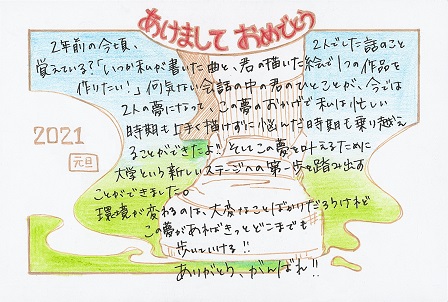 あけまして おめでとう
2年前の今頃、 2人でした話のこと
覚えている?「いつか私が書いた曲と、君の描いた絵で1つの作品を
作りたい!」何気ない会話の中の君のひとことが、今では
2人の夢になって、この夢のおかげで私は忙しい
時期も上手く描けずに悩んだ時期も乗り越え
ることができたよ!そしてこの夢を叶えるために
大学という新しいステージへの第一歩を踏み出す
ことができました。
環境が変わるのは、大変なことばかりだろうけれど
この夢があればきっとどこまでも
歩いていける!!
ありがとう、がんばれ!!
2021
元旦